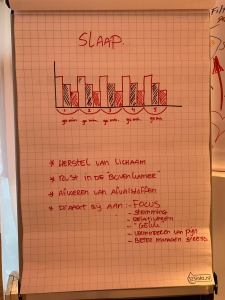 SLAAP
1 2 3 4 5
90 min. 90 min. 90 min. 90 min. 90 min.
* HERSTEL VAN LICHAAM
* RUST IN DE "BOVENKAMER"
* AFVOEREN VAN AFVALSTOFFEN
* DRAAGT BIJ AAN: - FOCUS
- stemming
- relativeren
- "GELUK"
- verminderen van pijn
- BETER managen STRESS